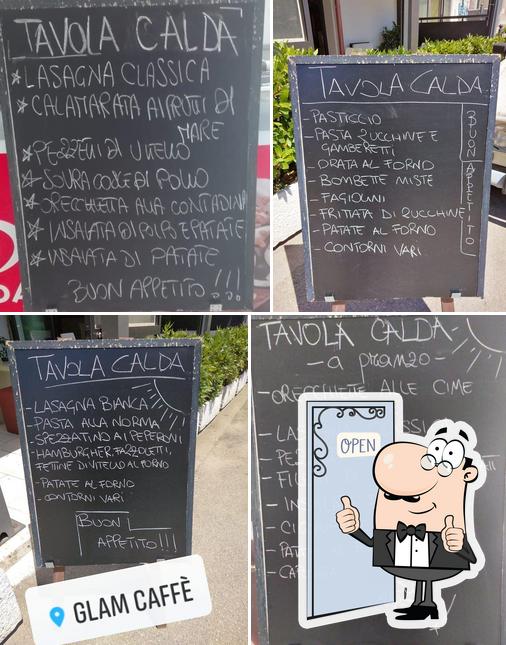 TAVOLA CALDA
LASAGNA CLASSICA
CALAMARATA AI FRUTTI DI
MARE
PEZZETTI DI VITELLO
SOVRACOSCE DI POLLO
ORECCHIETTA ALLA CONTADINA
INSALATA DI POLPO E PATATE
INSALATA DI PATATE
BUON APPETITO !!!
TAVOLA CALDA
- PASTICCIO
- PASTA ZUCCHINE E
GAMBERETTI
- ORATA AL FORNO
- BOMBETTE MISTE
- FAGIOLINI
- FRITTATA DI ZUCCHINE
- PATATE AL FORNO
- CONTORNI VARI
BUON APPETITO
TAVOLA CALDA
- LASAGNA BIANCA
- PASTA ALLA NORMA
- SPEZZATINO AI PEPERONI
- HAMBURGHER, FAZZOLETTI,
FETTINE DI VITELLO AL FORNO
- PATATE AL FORNO
- CONTORNI VARI
BUON
APPETITO!!!
GLAM CAFFÈ
TAVOLA CALDA
- a pranzo -
- ORECCHIETE ALLE CIME
OPEN